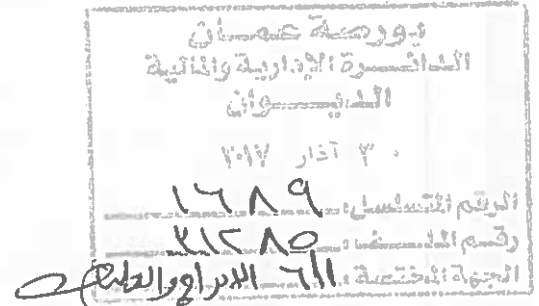 بورصة عمان
الدائرة الإدارية والمالية
الديوان
٣٠ آذار ٢٠١٧
الرقم المتسلسل: ١٦٨٩
رقم الملف: ٢١٢٨٥
الجهة المختصة: